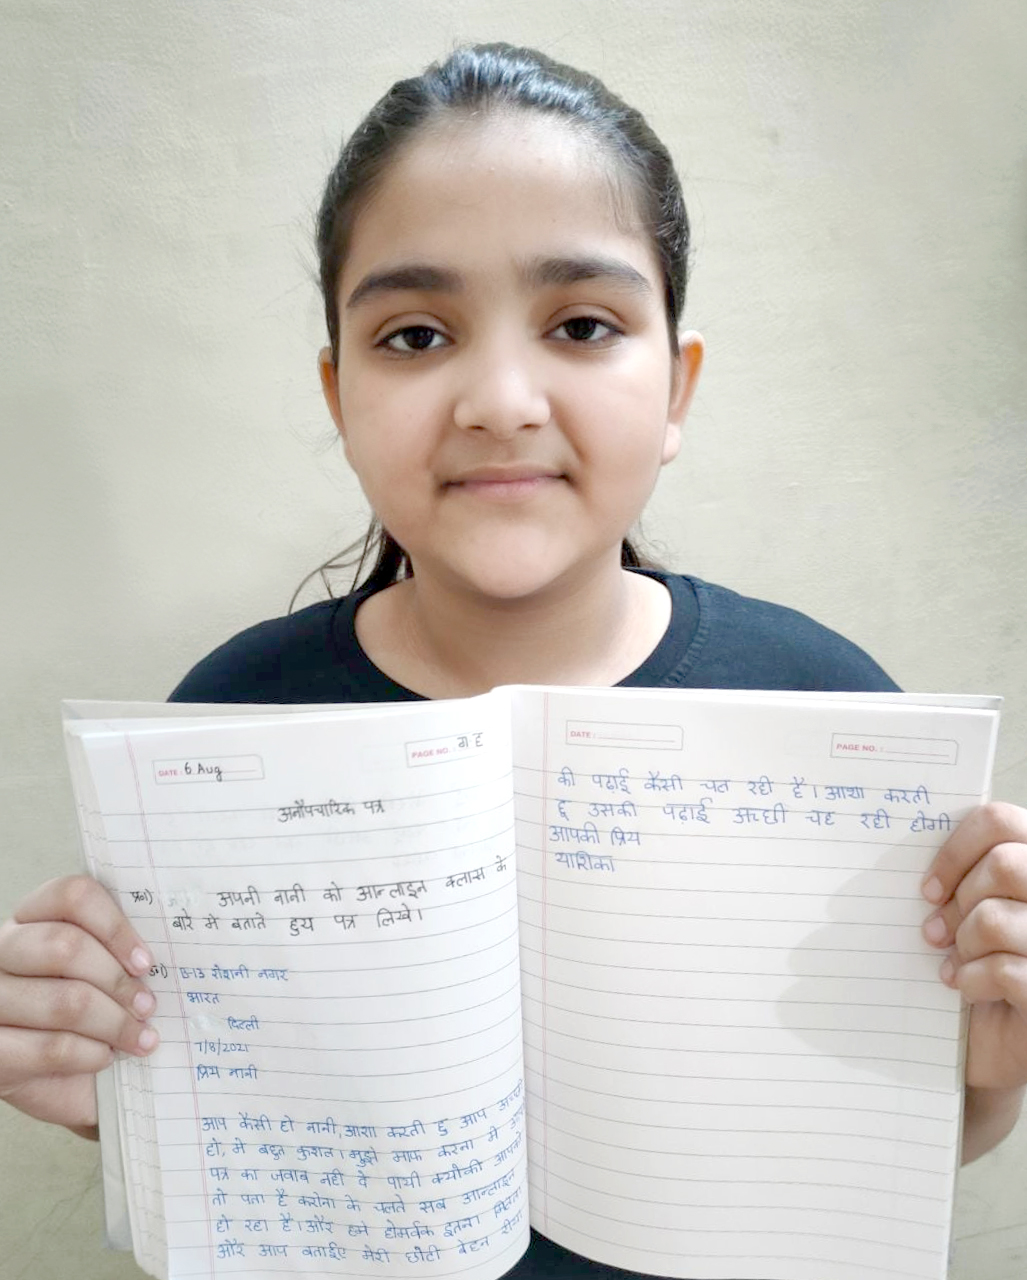 DATE: 6 Aug
PAGE NO.:
अनौपचारिक पत्र
प्र०1) अपनी नानी को आन्लाइन क्लास के
बारे मे बताते हुय पत्र लिखे।
B-13 रोशनी नगर
भारत
दिल्ली
7/8/2021
प्रिय नानी
आप कैसी हो नानी, आशा करती हु आप
हो, मे बहुत कुशल। मुझे माफ करना मे
पत्र का जवाब नही दे पायी क्योकी आपको
तो पता है करोना के चलते सब आन्लाइन
हो रहा है। और हमे होमर्वक इतना मिलता
और आप बताईए मेरी छोटी बेहन
DATE:
PAGE NO.:
की पढ़ाई कैसी चल रही है। आशा करती
हु उसकी पढ़ाई अच्छी चह रही होगी
आपकी प्रिय
याशिका